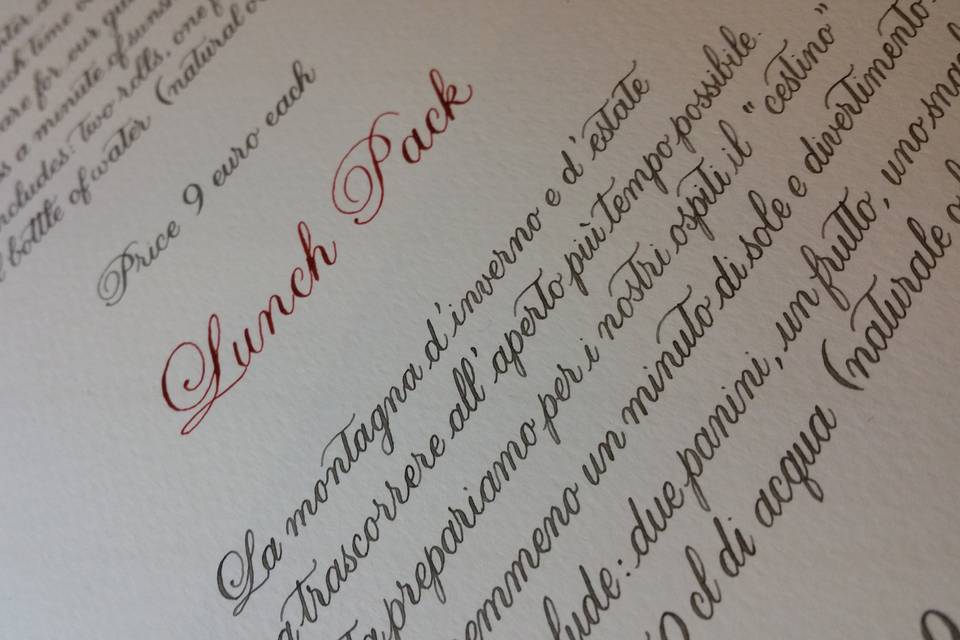 are for our
s a minute of
includes: two rolls, one
bottle of water (natural
Price 9 euro each
Lunch Pack
La montagna d'inverno e d'estate
trascorrere all'aperto più tempo possibile.
prepariamo per i nostri ospiti il "cestino"
nemmeno un minuto di sole e divertimento
due panini, un frutto, uno
cl di acqua (naturale